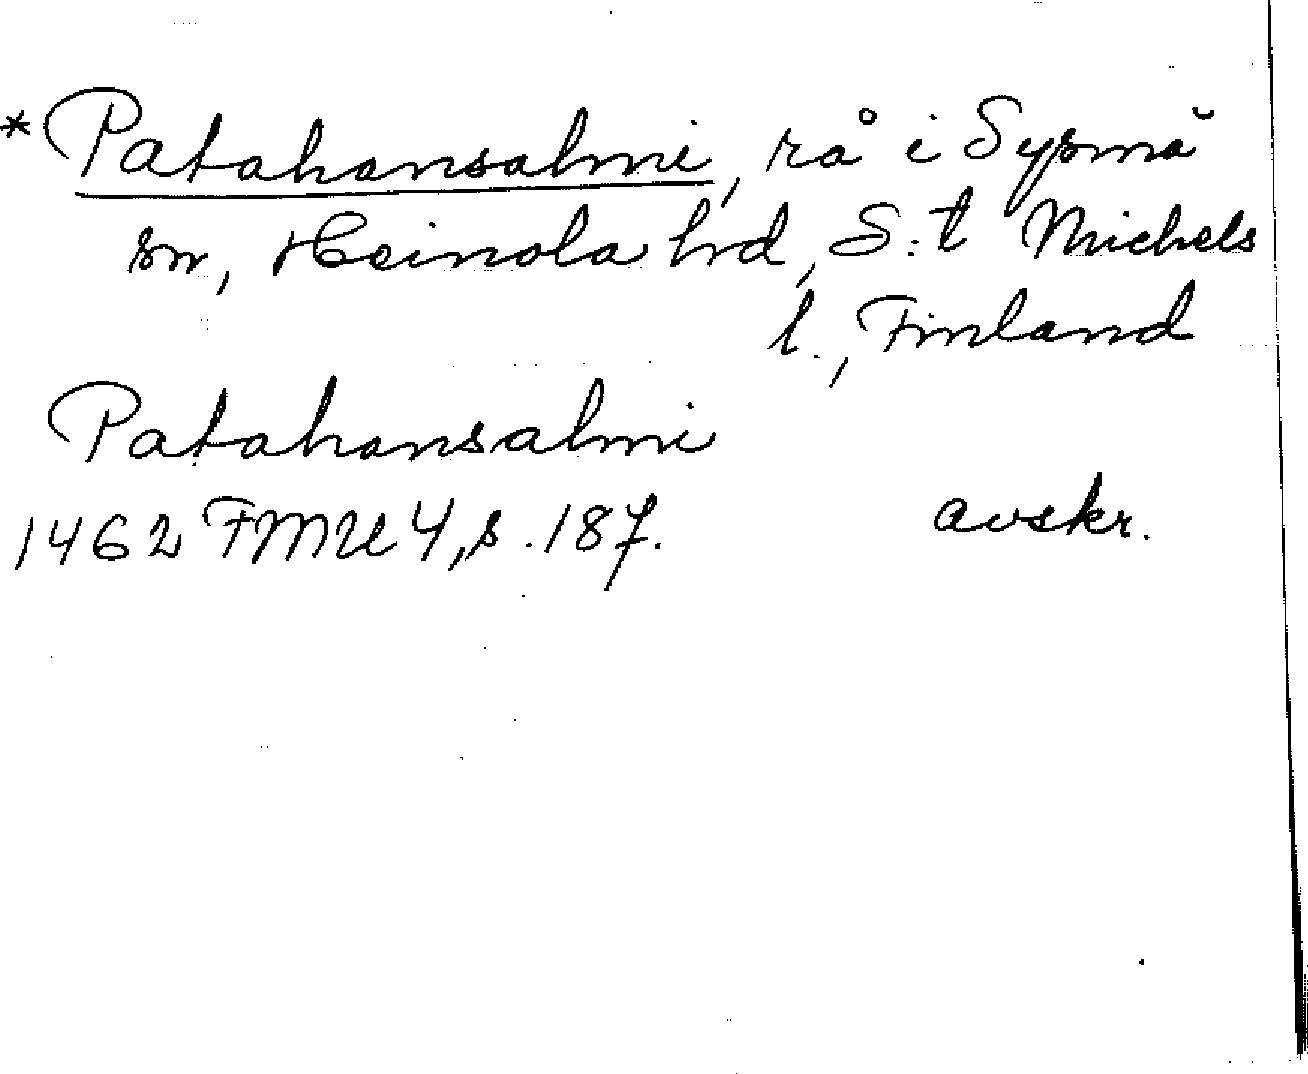 * Patahansalmi, rå i Sysmä
sn, Heinola hd, S:t Michels
l., Finland
Patahansalmi
1462 FMU 4, s. 187. avskr.